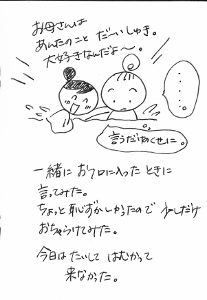 お母さんは
あんたのこと だーいしゅき。
大好きなんだよ～。
・・・・。
言うだけめくせに。
一緒に お フロに入った ときに
言ってみた。
ちょっと 恥ずかしかったので 少しだけ
おちゃらけてみた。
今日は たいして はむかって
来なかった。